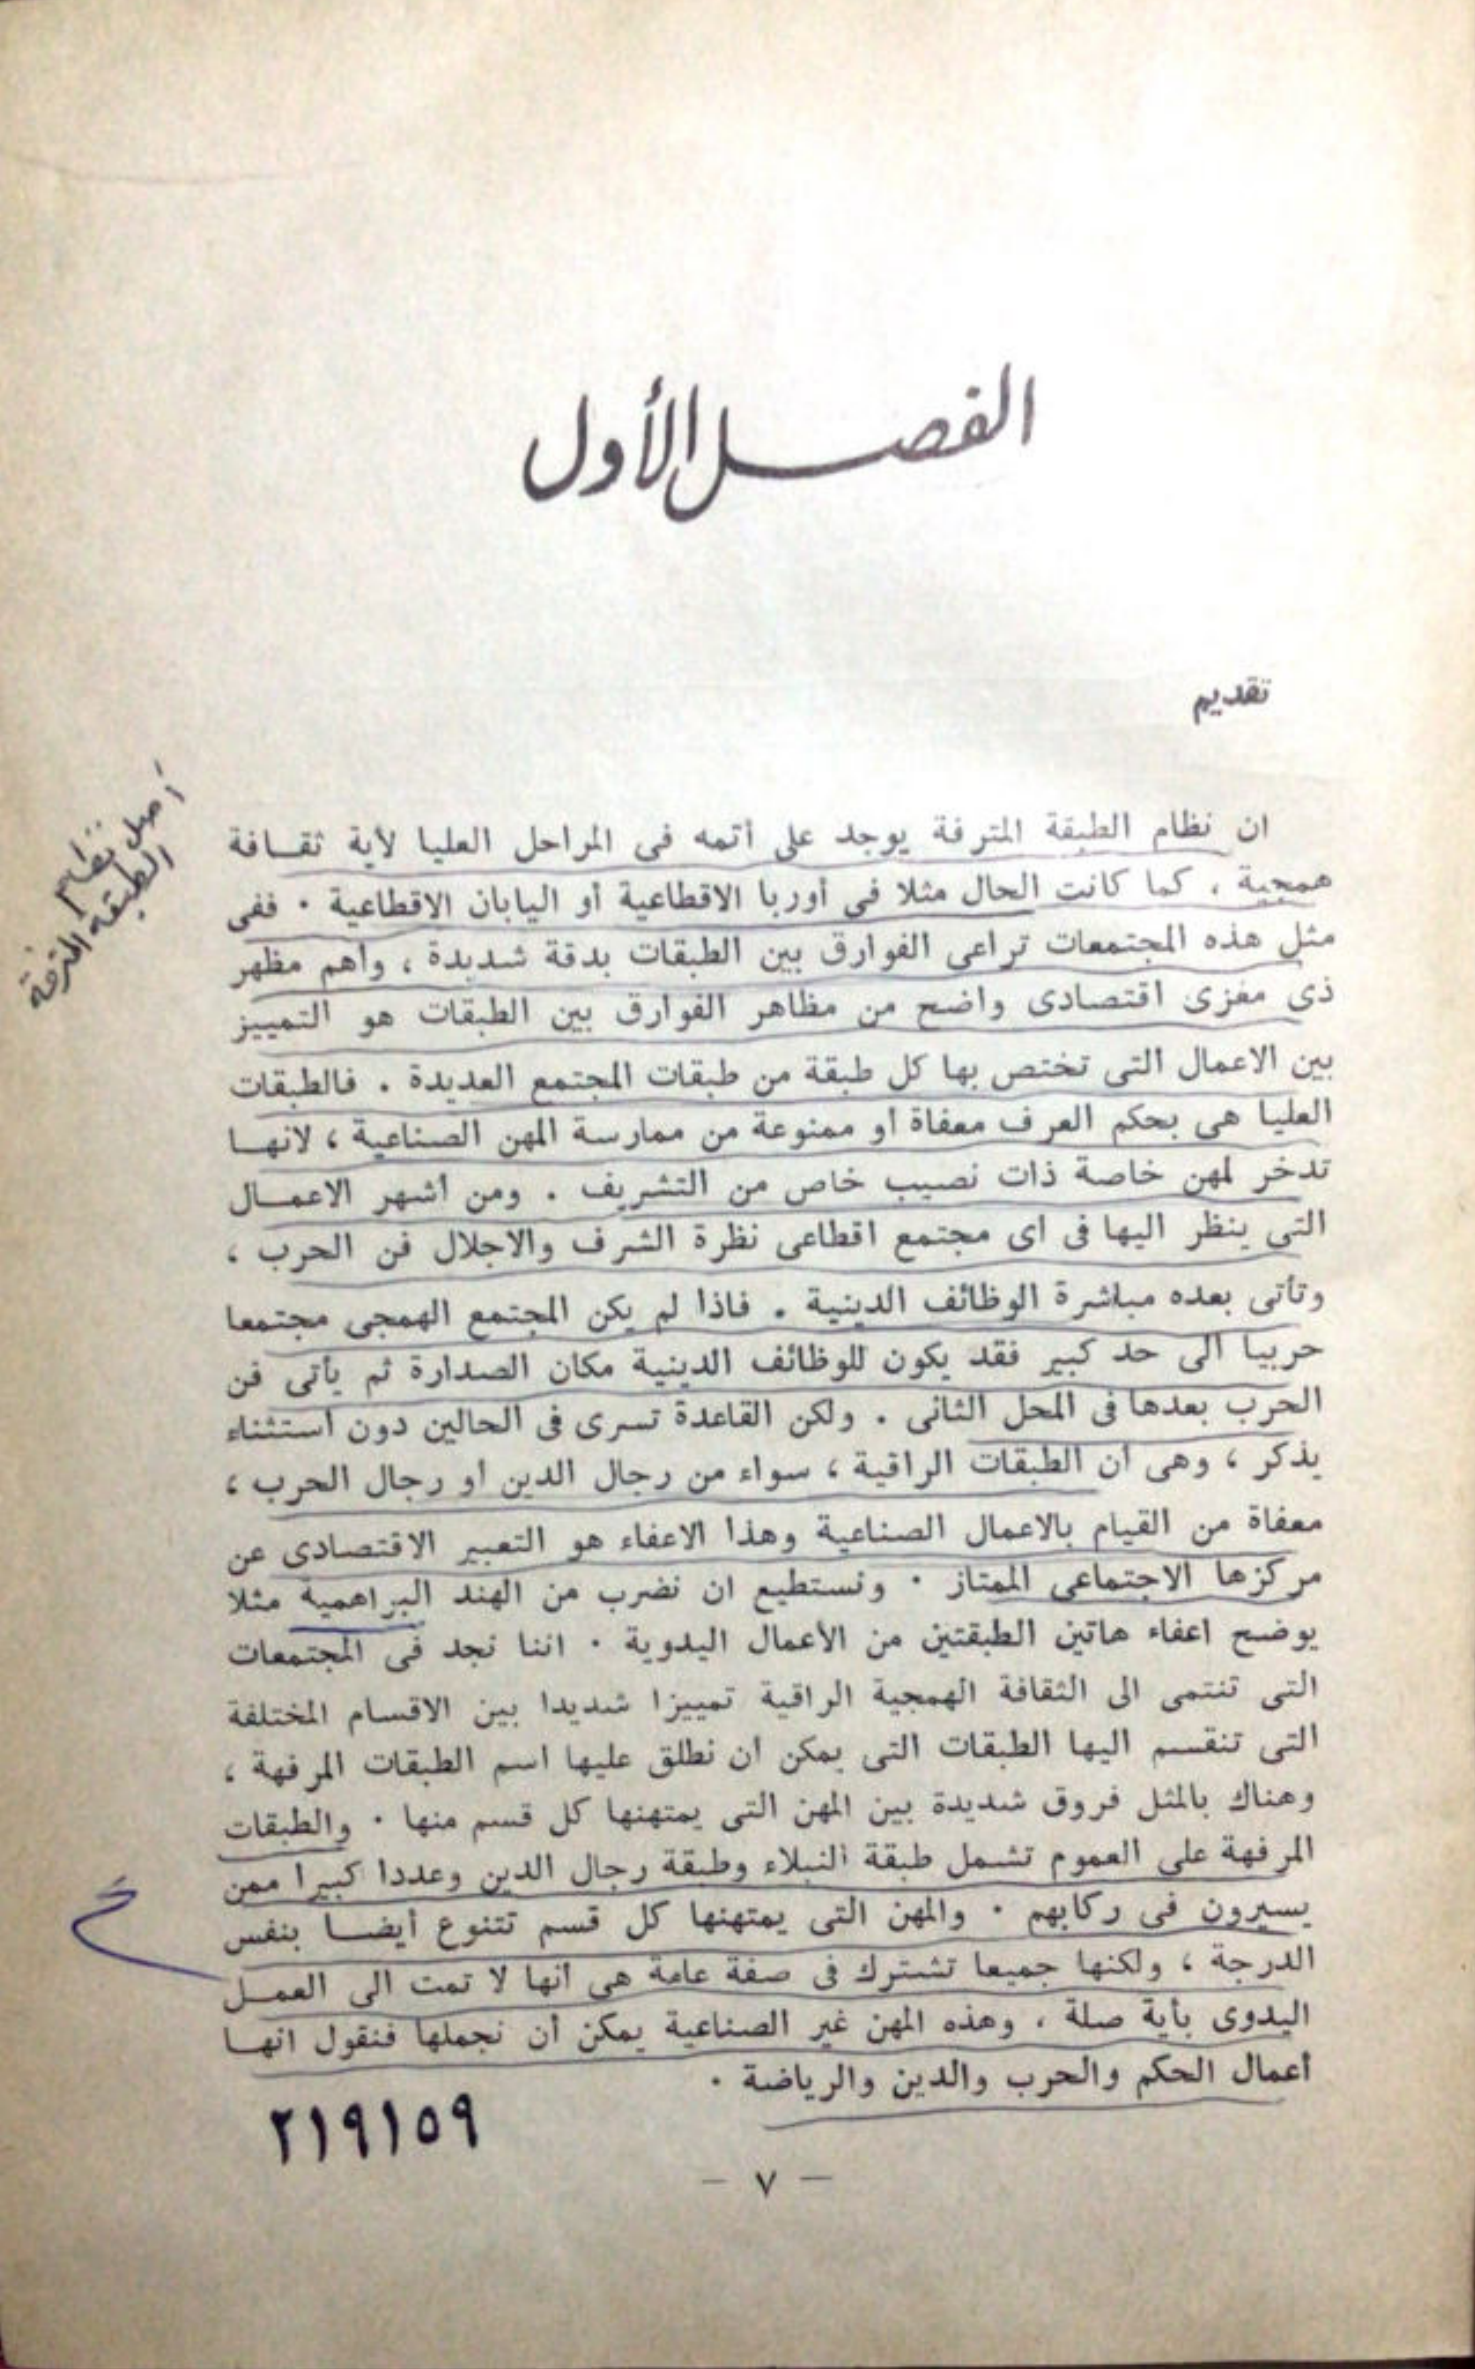 الفصل الأول
تقديم
أصل نظام
الطبقة المترفة
ان نظام الطبقة المترفة يوجد على أتمه فى المراحل العليا لأية ثقافة
همجية ، كما كانت الحال مثلا فى أوربا الاقطاعية أو اليابان الاقطاعية . ففى
مثل هذه المجتمعات تراعى الفوارق بين الطبقات بدقة شديدة ، وأهم مظهر
ذى مغزى اقتصادى واضح من مظاهر الفوارق بين الطبقات هو التمييز
بين الاعمال التى تختص بها كل طبقة من طبقات المجتمع العديدة . فالطبقات
العليا هى بحكم العرف معفاة أو ممنوعة من ممارسة المهن الصناعية ، لانها
تدخر لمهن خاصة ذات نصيب خاص من التشريف . ومن أشهر الاعمال
التى ينظر اليها فى أى مجتمع اقطاعى نظرة الشرف والاجلال فن الحرب ،
وتأتى بعده مباشرة الوظائف الدينية . فاذا لم يكن المجتمع الهمجى مجتمعا
حربيا الى حد كبير فقد يكون للوظائف الدينية مكان الصدارة ثم يأتى فن
الحرب بعدها فى المحل الثانى . ولكن القاعدة تسرى فى الحالين دون استثناء
يذكر ، وهى أن الطبقات الراقية ، سواء من رجال الدين أو رجال الحرب ،
معفاة من القيام بالاعمال الصناعية وهذا الاعفاء هو التعبير الاقتصادى عن
مركزها الاجتماعى الممتاز . ونستطيع ان نضرب من الهند البراهمية مثلا
يوضح اعفاء هاتين الطبقتين من الأعمال اليدوية . اننا نجد فى المجتمعات
التى تنتمى الى الثقافة الهمجية الراقية تمييزا شديدا بين الاقسام المختلفة
التى تنقسم اليها الطبقات التى يمكن ان نطلق عليها اسم الطبقات المرفهة ،
وهناك بالمثل فروق شديدة بين المهن التى يمتهنها كل قسم منها . والطبقات
المرفهة على العموم تشمل طبقة النبلاء وطبقة رجال الدين وعددا كبيرا ممن
يسيرون فى ركابهم . والمهن التى يمتهنها كل قسم تتنوع أيضا بنفس
الدرجة ، ولكنها جميعا تشترك فى صفة عامة هى أنها لا تمت الى العمل
اليدوى بأية صلة ، وهذه المهن غير الصناعية يمكن أن نجملها فنقول انها
أعمال الحكم والحرب والدين والرياضة .
٢١٩١٥٩
— ٧ —